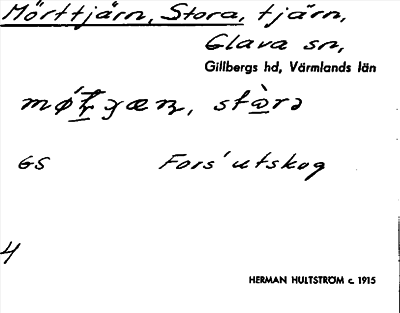 Mörttjärn, Stora, tjärn,
Glava sn,
Gillbergs hd, Värmlands län
stòrə
GS Fors' utskog
4
HERMAN HULTSTRÖM c. 1915